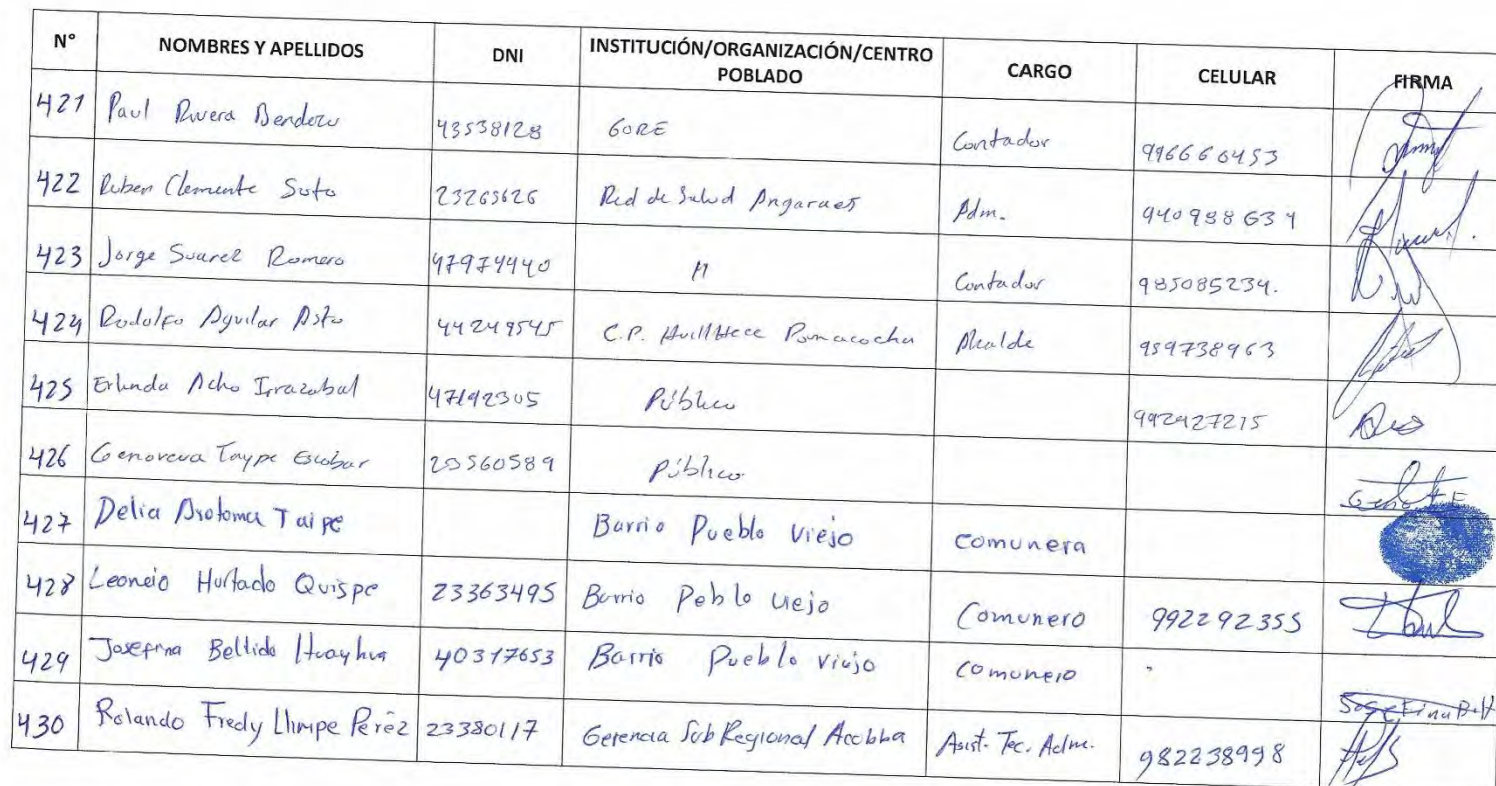 N° NOMBRES Y APELLIDOS DNI INSTITUCIÓN/ORGANIZACIÓN/CENTRO POBLADO CARGO CELULAR FIRMA
421 Paul Rivera Bendezu 43538128 GORE Contador 996660453
422 Ruben Clemente Soto 23265626 Red de Salud Angaraes Adm. 940988634
423 Jorge Suarez Romero 47974440 11 Contador 985085234.
424 Rodolfo Aguilar Asto 44249545 C.P. Pomacocha Alcalde 959738963
425 Erlinda Acho Irrazabal 47192305 Público 992927215
426 Genoveva Taype Escobar 23560589 Público
427 Delia Arotoma Taipe Barrio Pueblo Viejo comunera
428 Leoncio Hurtado Quispe 23363495 Barrio Peblo Uejo Comunero 992292355
429 Josefina Bellido Huayhua 40317653 Barrio Pueblo Viejo comunero
430 Rolando Fredy Llimpe Peréz 23380117 Gerencia Sub Regional Acobba Asist. Tec. Adm. 982238998